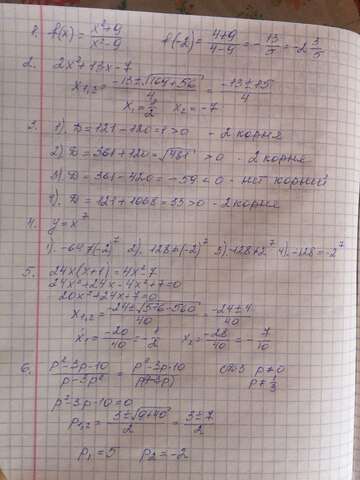 1. f(x) = (x²+9)/(x²-9)   f(-2) = (4+9)/(4-9) = -13/5 = -2 3/5
2. 2x²+13x-7
x₁,₂ = (-13±√(169+56))/4 = (-13±15)/4
x₁ = 1/2   x₂ = -7
3. 1). D = 121-120 = 1 > 0 - 2 корня
2) D = 361+120 = √481 > 0 - 2 корня
3) D = 361-420 = -59 < 0 - нет корней
4). D = 121+1068 = 33 > 0 - 2 корня
4. y = x⁷
1). -647(-2)⁷ 2). 128≠(-2)⁷ 3) -128≠2⁷ 4). -128 = -2⁷
5. 24x(x+1) = 4x²-7
24x²+24x-4x²+7=0
20x²+24x+7=0
x₁,₂ = (-24±√(576-560))/40 = (-24±4)/40
x₁ = -20/40 = -1/2   x₂ = -28/40 = -7/10
6. (p²-3p-10)/(p-3p²) = (p²-3p-10)/   ОДЗ p≠0
p≠1/3
p²-3p-10=0
p₁,₂ = (3±√(9+40))/2 = (3±7)/2
p₁ = 5   p₂ = -2